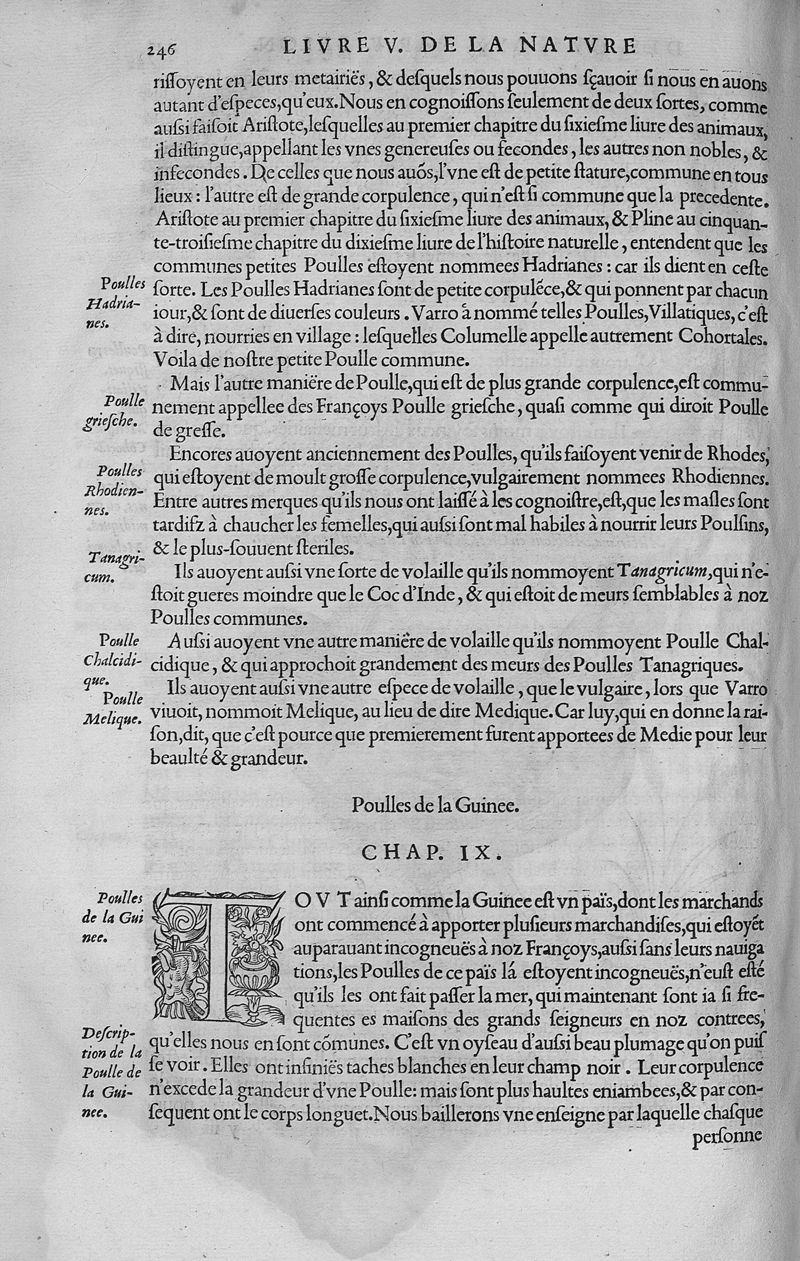 246 LIVRE V. DE LA NATVRE
riſſoyent en leurs metairiës, & deſquels nous pouuons ſçauoir ſi nous en auons
autant d'eſpeces, qu'eux. Nous en cognoiſſons ſeulement de deux ſortes, comme
auſsi faiſoit Ariſtote, leſquelles au premier chapitre du ſixieſme liure des animaux,
il diſtingue, appellant les vnes genereuſes ou fecondes, les autres non nobles, &
infecondes. De celles que nous auõs, l'vne eſt de petite ſtature, commune en tous
lieux : l'autre eſt de grande corpulence, qui n'eſt ſi commune que la precedente.
Ariſtote au premier chapitre du ſixieſme liure des animaux, & Pline au cinquan-
te-troiſieſme chapitre du dixieſme liure de l'hiſtoire naturelle, entendent que les
communes petites Poulles eſtoyent nommees Hadrianes : car ils dient en ceſte
Poulles
Hadria-
nes.
ſorte. Les Poulles Hadrianes ſont de petite corpulẽce, & qui ponnent par chacun
iour, & ſont de diuerſes couleurs. Varro à nommé telles Poulles, Villatiques, c'eſt
à dire, nourries en village : leſquelles Columelle appelle autrement Cohortales.
Voila de noſtre petite Poulle commune.
Mais l'autre maniëre de Poulle, qui eſt de plus grande corpulence, eſt commu-
Poulle
grieſche.
nement appellee des Françoys Poulle grieſche, quaſi comme qui diroit Poulle
de greſſe.
Encores auoyent anciennement des Poulles, qu'ils faiſoyent venir de Rhodes,
Poulles
Rhodien-
nes.
qui eſtoyent de moult groſſe corpulence, vulgairement nommees Rhodiennes.
Entre autres merques qu'ils nous ont laiſſé à les cognoiſtre, eſt, que les maſles ſont
tardifz à chaucher les femelles, qui auſsi ſont mal habiles à nourrir leurs Poulſins,
& le plus-ſouuent ſteriles.
Tanagri-
cum.
Ils auoyent auſsi vne ſorte de volaille qu'ils nommoyent Tanagricum, qui n'e-
ſtoit gueres moindre que le Coc d'Inde, & qui eſtoit de meurs ſemblables à noz
Poulles communes.
Poulle
Chalcidi-
que.
Auſsi auoyent vne autre maniëre de volaille qu'ils nommoyent Poulle Chal-
cidique, & qui approchoit grandement des meurs des Poulles Tanagriques.
Poulle
Melique.
Ils auoyent auſsi vne autre eſpece de volaille, que le vulgaire, lors que Varro
viuoit, nommoit Melique, au lieu de dire Medique. Car luy, qui en donne la rai-
ſon, dit, que c'eſt pource que premierement furent apportees de Medie pour leur
beaulté & grandeur.
Poulles de la Guinee.
CHAP. IX.
Poulles
de la Gui
nee.
TOVT ainſi comme la Guinee eſt vn païs, dont les marchands
ont commencé à apporter pluſieurs marchandiſes, qui eſtoyẽt
auparauant incogneuës à noz Françoys, auſsi ſans leurs nauiga
tions, les Poulles de ce païs lá eſtoyent incogneuës, n'euſt eſté
qu'ils les ont fait paſſer la mer, qui maintenant ſont ia ſi fre-
quentes es maiſons des grands ſeigneurs en noz contrees,
Deſcrip-
tion de la
Poulle de
la Gui-
nee.
qu'elles nous en ſont cõmunes. C'eſt vn oyſeau d'auſsi beau plumage qu'on puiſ
ſe voir. Elles ont infiniës taches blanches en leur champ noir. Leur corpulence
n'excede la grandeur d'vne Poulle: mais ſont plus haultes eniambees, & par con-
ſequent ont le corps longuet. Nous baillerons vne enſeigne par laquelle chaſque
perſonne